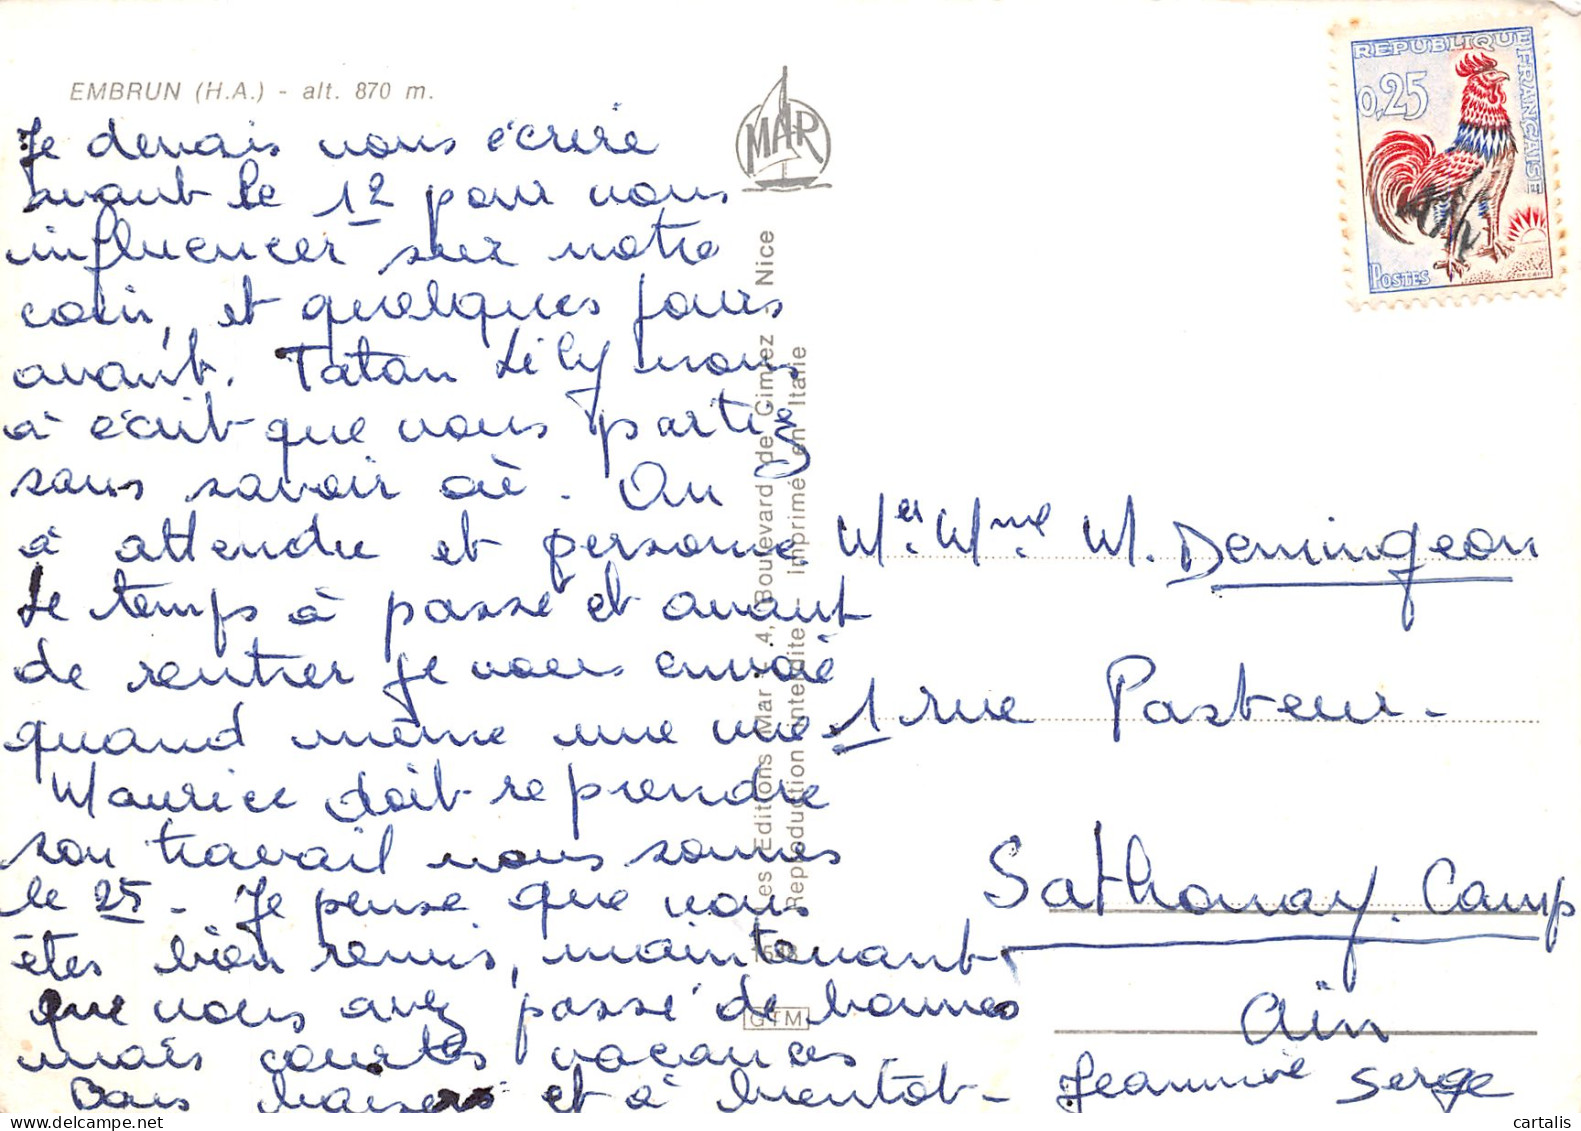 EMBRUN (H.A.) - alt. 870 m.
Je devais vous écrire
avant le 12 pour vous
influencer sur notre
coin, et quelques jours
avant. Tatan Lily nous
à écrit que vous partis
sans savoir où. On
à attendu et personne
Le temps à passé et avant
de rentrer je vous envoie
quand même une vue
Maurice doit reprendre
son travail nous sommes
le 25 - Je pense que vous
êtes bien remis, maintenant
que vous avez passé de bonnes
mais courtes vacances
Bons baisers et à bientot -
Jeannine Serge
MAR
Les Editions Mar - 4, Boulevard de Gimez - Nice
Reproduction interdite - Imprimé en Italie
GTM
REPUBLIQUE FRANÇAISE
0,25
POSTES
Mr et Mme M. Demingeon
1 rue Pasteur -
Sathonay. Camp
Ain
cartalis